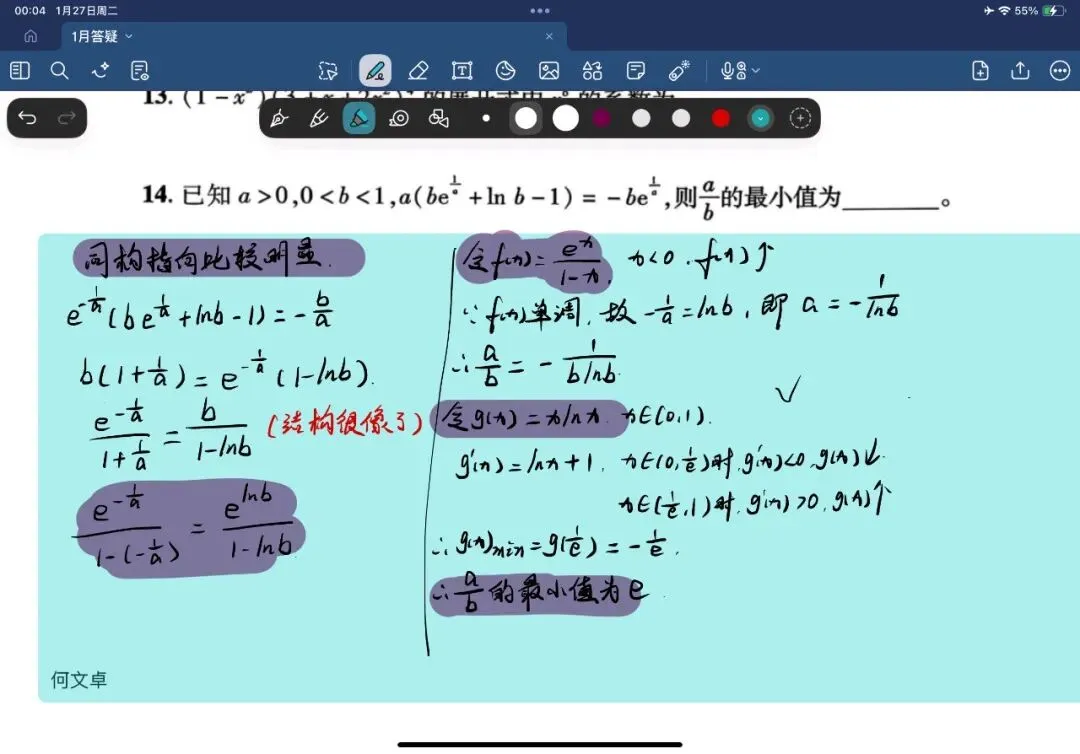 00:04 1月27日周二
55%
1月答疑
13.
14. 已知 a>0,0<b<1,a(be^{\frac{1}{a}}+ln b-1)=-be^{\frac{1}{a}},则\frac{a}{b}的最小值为______。
同构指向比较明显.
e^{-\frac{1}{a}}(be^{\frac{1}{a}}+lnb-1)=-\frac{b}{a}
b(1+\frac{1}{a})=e^{-\frac{1}{a}}(1-lnb).
\frac{e^{-\frac{1}{a}}}{1+\frac{1}{a}}=\frac{b}{1-lnb} (结构很像了)
\frac{e^{-\frac{1}{a}}}{1-(-\frac{1}{a})}=\frac{e^{lnb}}{1-lnb}
令f(x)=\frac{e^x}{1-x}, x<0, f(x)↑
∵f(x)单调,故-\frac{1}{a}=lnb,即 a=-\frac{1}{lnb}
∴\frac{a}{b}=-\frac{1}{blnb}.
令g(x)=xlnx. x∈(0,1).
g'(x)=lnx+1, x∈(0,\frac{1}{e})时,g'(x)<0,g(x)↓.
x∈(\frac{1}{e},1)时,g'(x)>0,g(x)↑
∴g(x)min=g(\frac{1}{e})=-\frac{1}{e}.
∴\frac{a}{b}的最小值为e.
何文卓